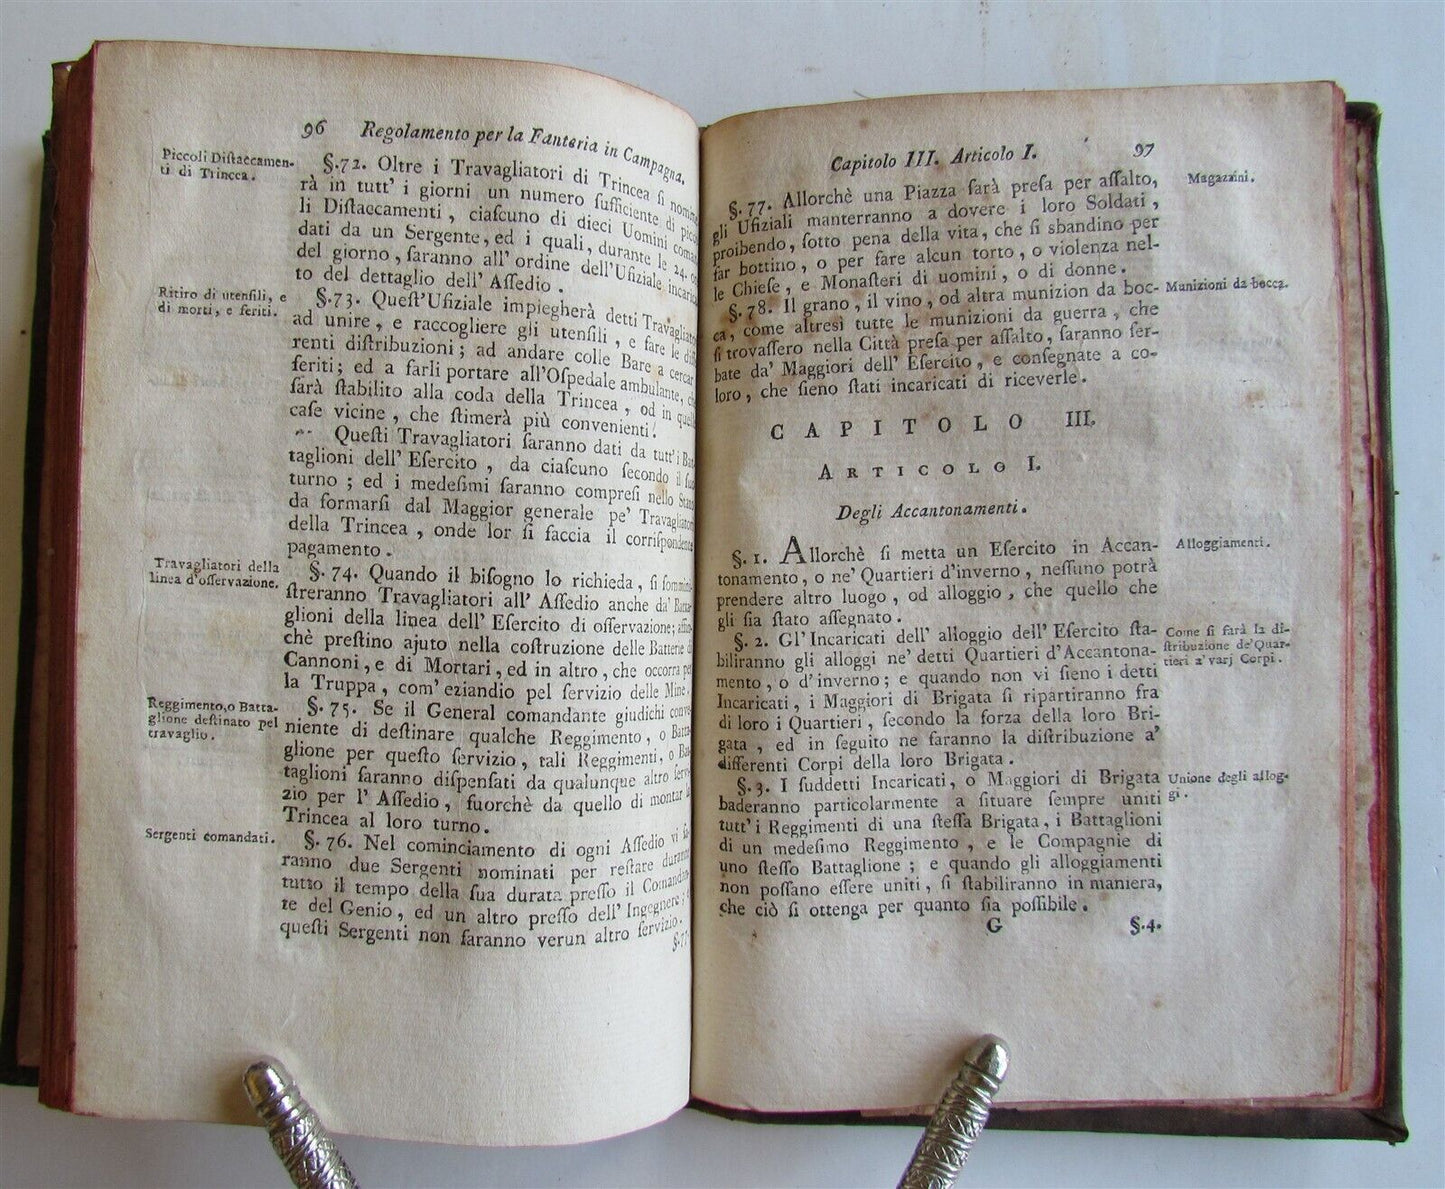 96 Regolamento per la Fanteria in Campagna.
Piccoli Diſtaccamen-
ti di Trincea.
§. 72. Oltre i Travagliatori di Trincea ſi nomine
rà in tutt' i giorni un numero ſufficiente di picco
li Diſtaccamenti, ciaſcuno di dieci Uomini coman
dati da un Sergente, ed i quali, durante le 24. ore
del giorno, ſaranno all' ordine dell'Ufiziale incarica
to del dettaglio dell' Aſſedio.
Ritiro di utenſili, e
di morti, e feriti.
§. 73. Queſt'Ufiziale impiegherà detti Travagliato
ad unire, e raccogliere gli utenſili, e fare le diffe
renti diſtribuzioni; ad andare colle Bare a cercar
feriti; ed a farli portare all'Oſpedale ambulante, che
ſarà ſtabilito alla coda della Trincea, od in quelle
caſe vicine, che ſtimerà più convenienti.
Queſti Travagliatori ſaranno dati da tutt' i Bat
taglioni dell' Eſercito, da ciaſcuno ſecondo il ſuo
turno; ed i medeſimi ſaranno compreſi nello Stato
da formarſi dal Maggior generale pe' Travagliatori
della Trincea, onde lor ſi faccia il corriſpondente
pagamento.
Travagliatori della
linea d'oſſervazione.
§. 74. Quando il biſogno lo richieda, ſi ſommini
ſtreranno Travagliatori all' Aſſedio anche da' Batta
glioni della linea dell' Eſercito di oſſervazione; affin
chè preſtino ajuto nella coſtruzione delle Batterie di
Cannoni, e di Mortari, ed in altro, che occorra per
la Truppa, com' eziandio pel ſervizio delle Mine.
Reggimento, o Batta-
glione deſtinato pel
travaglio.
§. 75. Se il General comandante giudichi conve
niente di deſtinare qualche Reggimento, o Batta
glione per queſto ſervizio, tali Reggimenti, o Bat
taglioni ſaranno diſpenſati da qualunque altro ſervi
zio per l' Aſſedio, fuorchè da quello di montar la
Trincea al loro turno.
Sergenti comandati.
§. 76. Nel cominciamento di ogni Aſſedio vi ſa
ranno due Sergenti nominati per reſtare durante
tutto il tempo della ſua durata preſſo il Comandan-
te del Genio, ed un altro preſſo dell' Ingegnere; e
queſti Sergenti non faranno verun altro ſervizio.
§. 77.
Capitolo III. Articolo I. 97
§. 77. Allorchè una Piazza ſarà preſa per aſſalto,
gli Ufiziali manterranno a dovere i loro Soldati,
proibendo, ſotto pena della vita, che ſi sbandino per
far bottino, o per fare alcun torto, o violenza nel-
le Chieſe, e Monaſteri di uomini, o di donne.
Magazzini.
§. 78. Il grano, il vino, od altra munizion da boc-
ca, come altresì tutte le munizioni da guerra, che
ſi trovaſſero nella Città preſa per aſſalto, ſaranno ſer-
bate da' Maggiori dell' Eſercito, e conſegnate a co-
loro, che ſieno ſtati incaricati di riceverle.
Munizioni da bocca.
CAPITOLO III.
ARTICOLO I.
Degli Accantonamenti.
§. 1. Allorchè ſi metta un Eſercito in Accan-
tonamento, o ne' Quartieri d'inverno, neſſuno potrà
prendere altro luogo, od alloggio, che quello che
gli ſia ſtato aſſegnato.
Alloggiamenti.
§. 2. Gl' Incaricati dell' alloggio dell' Eſercito ſta-
biliranno gli alloggi ne' detti Quartieri d'Accantona-
mento, o d' inverno; e quando non vi ſieno i detti
Incaricati, i Maggiori di Brigata ſi ripartiranno fra
di loro i Quartieri, ſecondo la forza della loro Bri-
gata, ed in ſeguito ne faranno la diſtribuzione a'
differenti Corpi della loro Brigata.
Come ſi farà la di-
ſtribuzione de'Quar-
tieri a' varj Corpi.
§. 3. I ſuddetti Incaricati, o Maggiori di Brigata
baderanno particolarmente a ſituare ſempre uniti
tutt' i Reggimenti di una ſteſſa Brigata, i Battaglioni
di un medeſimo Reggimento, e le Compagnie di
uno ſteſſo Battaglione; e quando gli alloggiamenti
non poſſano eſſere uniti, ſi ſtabiliranno in maniera,
che ciò ſi ottenga per quanto ſia poſſibile.
Unione degli allog-
gi.
G §. 4.